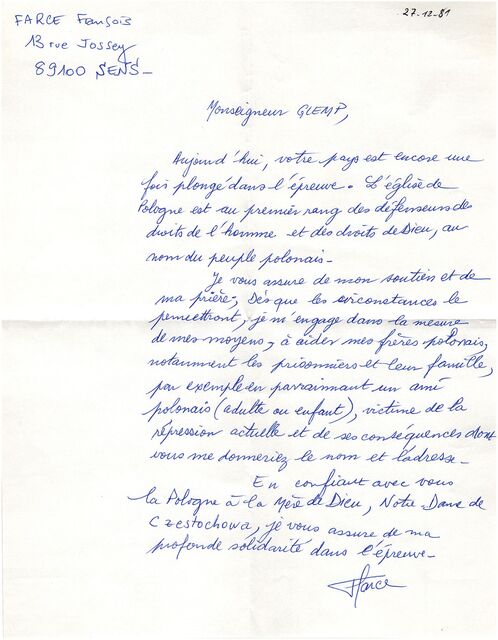 27-12-81
FARCE François
13 rue Jossey
89100 SENS-
Monseigneur GLEMP,
Aujourd'hui, votre pays est encore une
fois plongé dans l'épreuve. L'église de
Pologne est au premier rang des défenseurs des
droits de l'homme et des droits de Dieu, au
nom du peuple polonais-
Je vous assure de mon soutien et de
ma prière; Dès que les circonstances le
permettront, je m'engage dans la mesure
de mes moyens, à aider mes frères polonais,
notamment les prisonniers et leur famille,
par exemple en parrainant un ami
polonais (adulte ou enfant), victime de la
répression actuelle et de ses conséquences dont
vous me donneriez le nom et l'adresse-
En confiant avec vous
la Pologne à la Mère de Dieu, Notre Dame de
Czestochowa, je vous assure de ma
profonde solidarité dans l'épreuve-
FFarce